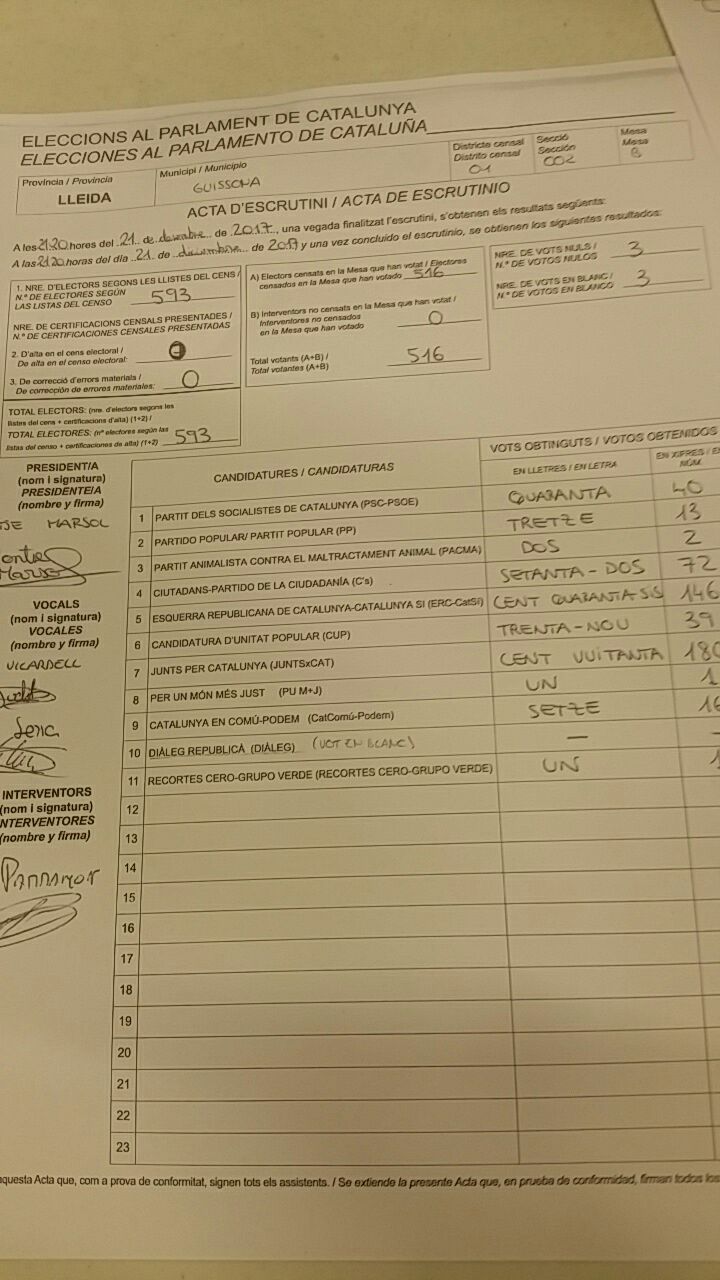 ELECCIONS AL PARLAMENT DE CATALUNYA
ELECCIONES AL PARLAMENTO DE CATALUÑA
Província / Provincia
LLEIDA
Municipi / Municipio
GUISSONA
Districte censal
Distrito censal
01
Secció
Sección
002
Mesa
Mesa
B
ACTA D'ESCRUTINI / ACTA DE ESCRUTINIO
A les 21:20 hores del 21 de desembre de 2017, una vegada finalitzat l'escrutini, s'obtenen els resultats següents:
A las 21:20 horas del día 21 de diciembre de 2017 y una vez concluido el escrutinio, se obtienen los siguientes resultados:
1. NRE. D'ELECTORS SEGONS LES LLISTES DEL CENS /
N.º DE ELECTORES SEGÚN
LAS LISTAS DEL CENSO 593
NRE. DE CERTIFICACIONS CENSALS PRESENTADES /
N.º DE CERTIFICACIONES CENSALES PRESENTADAS
2. D'alta en el cens electoral /
De alta en el censo electoral:
3. De correcció d'errors materials /
De corrección de errores materiales: 0
TOTAL ELECTORS: (nre. d'electors segons les
llistes del cens + certificacions d'alta) (1+2) /
TOTAL ELECTORES: (nº electores según las
listas del censo + certificaciones de alta) (1+2) 593
A) Electors censats en la Mesa que han votat / Electores
censados en la Mesa que han votado 516
B) Interventors no censats en la Mesa que han votat /
Interventores no censados
en la Mesa que han votado 0
Total votants (A+B) /
Total votantes (A+B) 516
NRE. DE VOTS NULS /
N.º DE VOTOS NULOS 3
NRE. DE VOTS EN BLANC /
N.º DE VOTOS EN BLANCO 3
PRESIDENT/A
(nom i signatura)
PRESIDENTE/A
(nombre y firma)
MARSOL
VOCALS
(nom i signatura)
VOCALES
(nombre y firma)
VICARDELL
INTERVENTORS
(nom i signatura)
INTERVENTORES
(nombre y firma)
CANDIDATURES / CANDIDATURAS
VOTS OBTINGUTS / VOTOS OBTENIDOS
EN LLETRES / EN LETRA
EN XIFRES / EN
NÚM.
1 PARTIT DELS SOCIALISTES DE CATALUNYA (PSC-PSOE) QUARANTA 40
2 PARTIDO POPULAR/ PARTIT POPULAR (PP) TRETZE 13
3 PARTIT ANIMALISTA CONTRA EL MALTRACTAMENT ANIMAL (PACMA) DOS 2
4 CIUTADANS-PARTIDO DE LA CIUDADANÍA (C's) SETANTA-DOS 72
5 ESQUERRA REPUBLICANA DE CATALUNYA-CATALUNYA SÍ (ERC-CatSí) CENT QUARANTA SIS 146
6 CANDIDATURA D'UNITAT POPULAR (CUP) TRENTA-NOU 39
7 JUNTS PER CATALUNYA (JUNTSxCAT) CENT VUITANTA 180
8 PER UN MÓN MÉS JUST (PU M+J) UN 1
9 CATALUNYA EN COMÚ-PODEM (CatComú-Podem) SETZE 16
10 DIÀLEG REPUBLICÀ (DIÀLEG) (VOT EN BLANC) —
11 RECORTES CERO-GRUPO VERDE (RECORTES CERO-GRUPO VERDE) UN 1
12
13
14
15
16
17
18
19
20
21
22
23
questa Acta que, com a prova de conformitat, signen tots els assistents. / Se extiende la presente Acta que, en prueba de conformidad, firman todos los